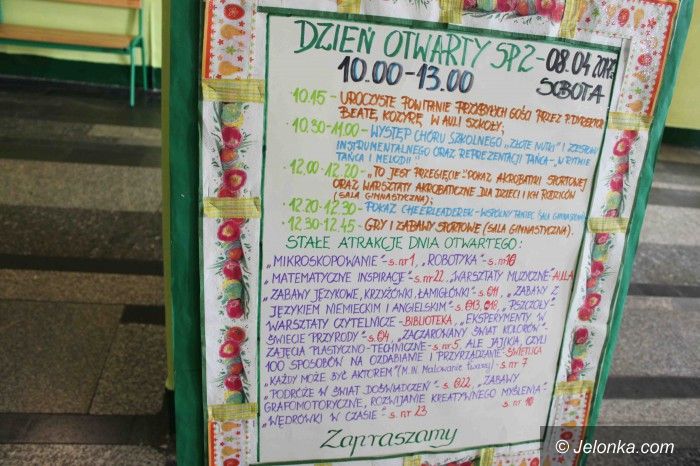 DZIEŃ OTWARTY SP2-08.04.2017r.
10.00-13.00 SOBOTA
10.15 - UROCZYSTE POWITANIE PRZYBYŁYCH GOŚCI PRZEZ P. DYREKTOR
BEATĘ KOZYRĘ W AULI SZKOŁY;
10.30-11.00 - WYSTĘP CHÓRU SZKOLNEGO „ZŁOTE NUTKI" I ZESPOŁU
INSTRUMENTALNEGO ORAZ REPREZENTACJI TAŃCA - „W RYTMIE
TAŃCA I MELODII"
12.00-12.20 - „TO JEST PRZEGIĘCIE" POKAZ AKROBATYKI SPORTOWEJ
ORAZ WARSZTATY AKROBATYCZNE DLA DZIECI I ICH RODZICÓW
(SALA GIMNASTYCZNA);
12.20-12.30 - POKAZ CHEERLEADEREK - WSPÓLNY TANIEC SALA GIMNASTYCZNA
12.30-12.45 - GRY I ZABAWY SPORTOWE (SALA GIMNASTYCZNA).
STAŁE ATRAKCJE DNIA OTWARTEGO:
„MIKROSKOPOWANIE" - s. nr 1, „ROBOTYKA" - s. nr 10
„MATEMATYCZNE INSPIRACJE" - s. nr 22, „WARSZTATY MUZYCZNE - AULA
„ZABAWY JĘZYKOWE, KRZYŻÓWKI, ŁAMIGŁÓWKI" - s. 011, „ZABAWY Z
JĘZYKIEM NIEMIECKIM I ANGIELSKIM" - s. 013, 018, „PSZCZOŁY"
WARSZTATY CZYTELNICZE - BIBLIOTEKA, „EKSPERYMENTY W
ŚWIECIE PRZYRODY" s. 04, „ZACZAROWANY ŚWIAT KOLORÓW" -
ZAJĘCIA PLASTYCZNO-TECHNICZNE - s. nr 5 ALE JAJ(K)A, CZYLI
100 SPOSOBÓW NA OZDABIANIE I PRZYRZĄDZANIE - ŚWIETLICA
„KAŻDY MOŻE BYĆ AKTOREM" (M.IN. Malowanie twarzy) - s. nr 7
„PODRÓŻE W ŚWIAT DOŚWIADCZEŃ" - s. 022, „ZABAWY
GRAFOMOTORYCZNE, ROZWIJANIE KREATYWNEGO MYŚLENIA -
„WĘDRÓWKI W CZASIE" - s. nr 23 s. nr 18
Zapraszamy
© Jelonka.com